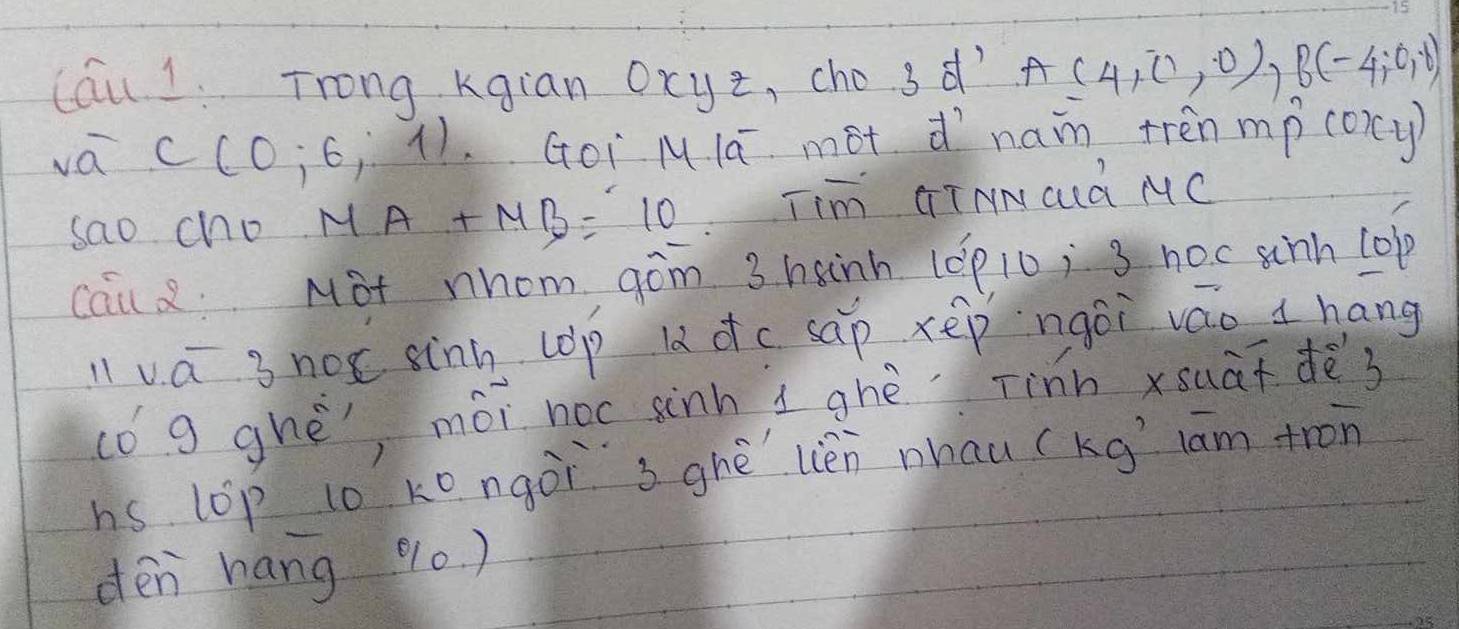 Câu 1: Trong kgian Oxyz, cho 3 đ' A(4;0;0), B(-4;0;0)
và C(0;6;1). Gọi M là một đ' nằm trên mp (Oxy)
sao cho MA + MB = 10. Tìm GTNN của MC
Câu 2: Một nhóm gồm 3 hsinh lớp 10; 3 học sinh lớp
11 và 3 học sinh lớp 12 đc sắp xếp ngồi vào 1 hàng
có 9 ghế, mỗi học sinh 1 ghế. Tính xsuất để 3
hs lớp 10 ko ngồi 3 ghế liền nhau (kq làm tròn
đến hàng %)